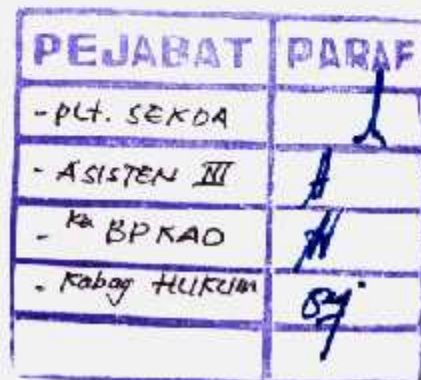 PEJABAT PARAF
- PLt. SEKDA
- ASISTEN III
- Ka BPKAD
- Kabag HUKUM